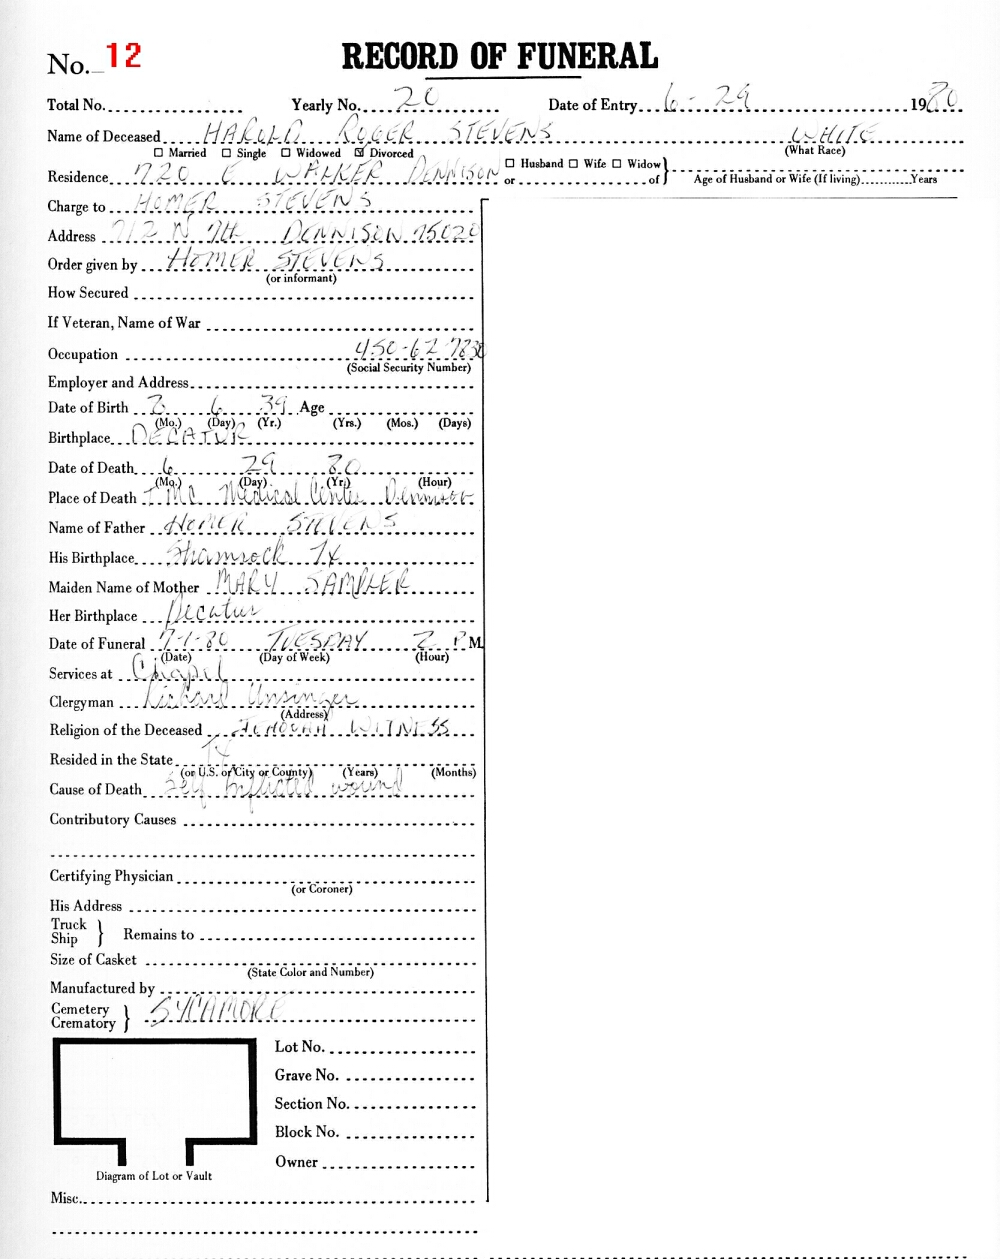 No. 12 RECORD OF FUNERAL
Total No. Yearly No. 20 Date of Entry 6 - 29 1980
Name of Deceased HAROLD ROGER STEVENS WHITE
☐ Married ☐ Single ☐ Widowed ☒ Divorced (What Race)
Residence 720 E WALKER DENNISON ☐ Husband ☐ Wife ☐ Widow
or of Age of Husband or Wife (If living) Years
Charge to HOMER STEVENS
Address 712 N 7th DENNISON 75020
Order given by HOMER STEVENS
(or informant)
How Secured
If Veteran, Name of War
Occupation 450-62-7838
(Social Security Number)
Employer and Address
Date of Birth 6 39 Age
(Mo.) (Day) (Yr.) (Yrs.) (Mos.) (Days)
Birthplace DECATUR
Date of Death 6 29 80
(Mo.) (Day) (Yr.) (Hour)
Place of Death TMC Medical Center Dennison
Name of Father HOMER STEVENS
His Birthplace Shamrock Tx
Maiden Name of Mother MARY SAMPLER
Her Birthplace Decatur
Date of Funeral 7-1-80 TUESDAY 2 P M.
(Date) (Day of Week) (Hour)
Services at Chapel
Clergyman Richard Unsinger
(Address)
Religion of the Deceased JEHOVAH WITNESS
Resided in the State TX
(or U.S. or City or County) (Years) (Months)
Cause of Death Self inflicted wound
Contributory Causes
Certifying Physician
(or Coroner)
His Address
Truck
Ship } Remains to
Size of Casket
(State Color and Number)
Manufactured by
Cemetery
Crematory } SYCAMORE
Lot No.
Grave No.
Section No.
Block No.
Owner
Diagram of Lot or Vault
Misc.